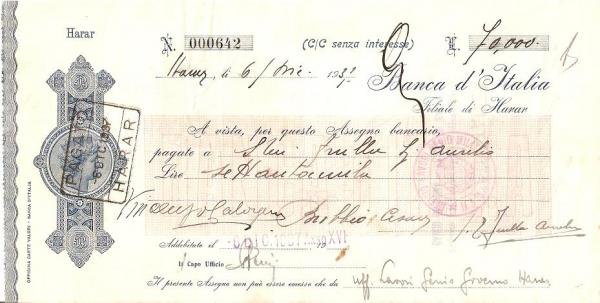 Harar
N. 000642 (C/C senza interesse) £. 70,000.-
Harar, li 6/Dic. 1937
Banca d'Italia
Filiale di Harar
A vista, per questo Assegno bancario,
pagate a Aurelio
Lire settantamila
PAGATO
6 DIC. 1937
HARAR
Addebitato il -6 DIC. 1937 XVI
Il Capo Ufficio
Il presente Assegno non può essere emesso che da Uff. Lavori Genio Governo Harar
OFFICINA CARTE VALORI - BANCA D'ITALIA